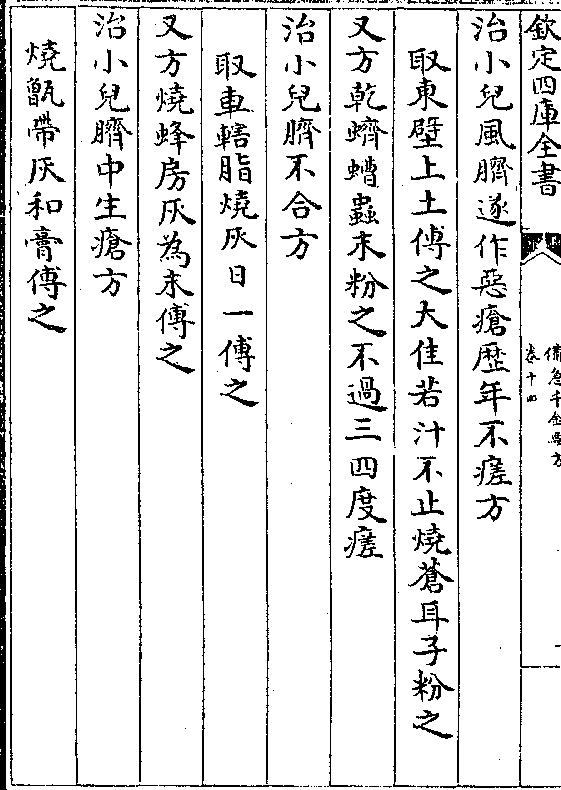 欽定四庫全書
備急千金要方
卷十四
治小兒風臍遂作惡瘡歴年不瘥方
取東壁上土傅之大佳若汁不止燒蒼耳子粉之
又方乾蠐螬蟲末粉之不過三四度瘥
治小兒臍不合方
取車轄脂燒灰日一傅之
又方燒蜂房灰為末傅之
治小兒臍中生瘡方
燒甑帶灰和膏傅之